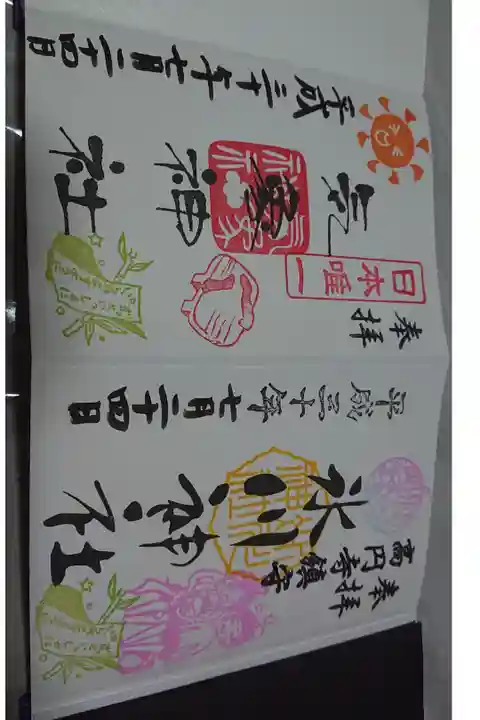 奉拝
高円寺鎮守
氷川神社
平成三十年七月二十四日
奉拝
日本唯一
気象神社
平成三十年七月二十四日